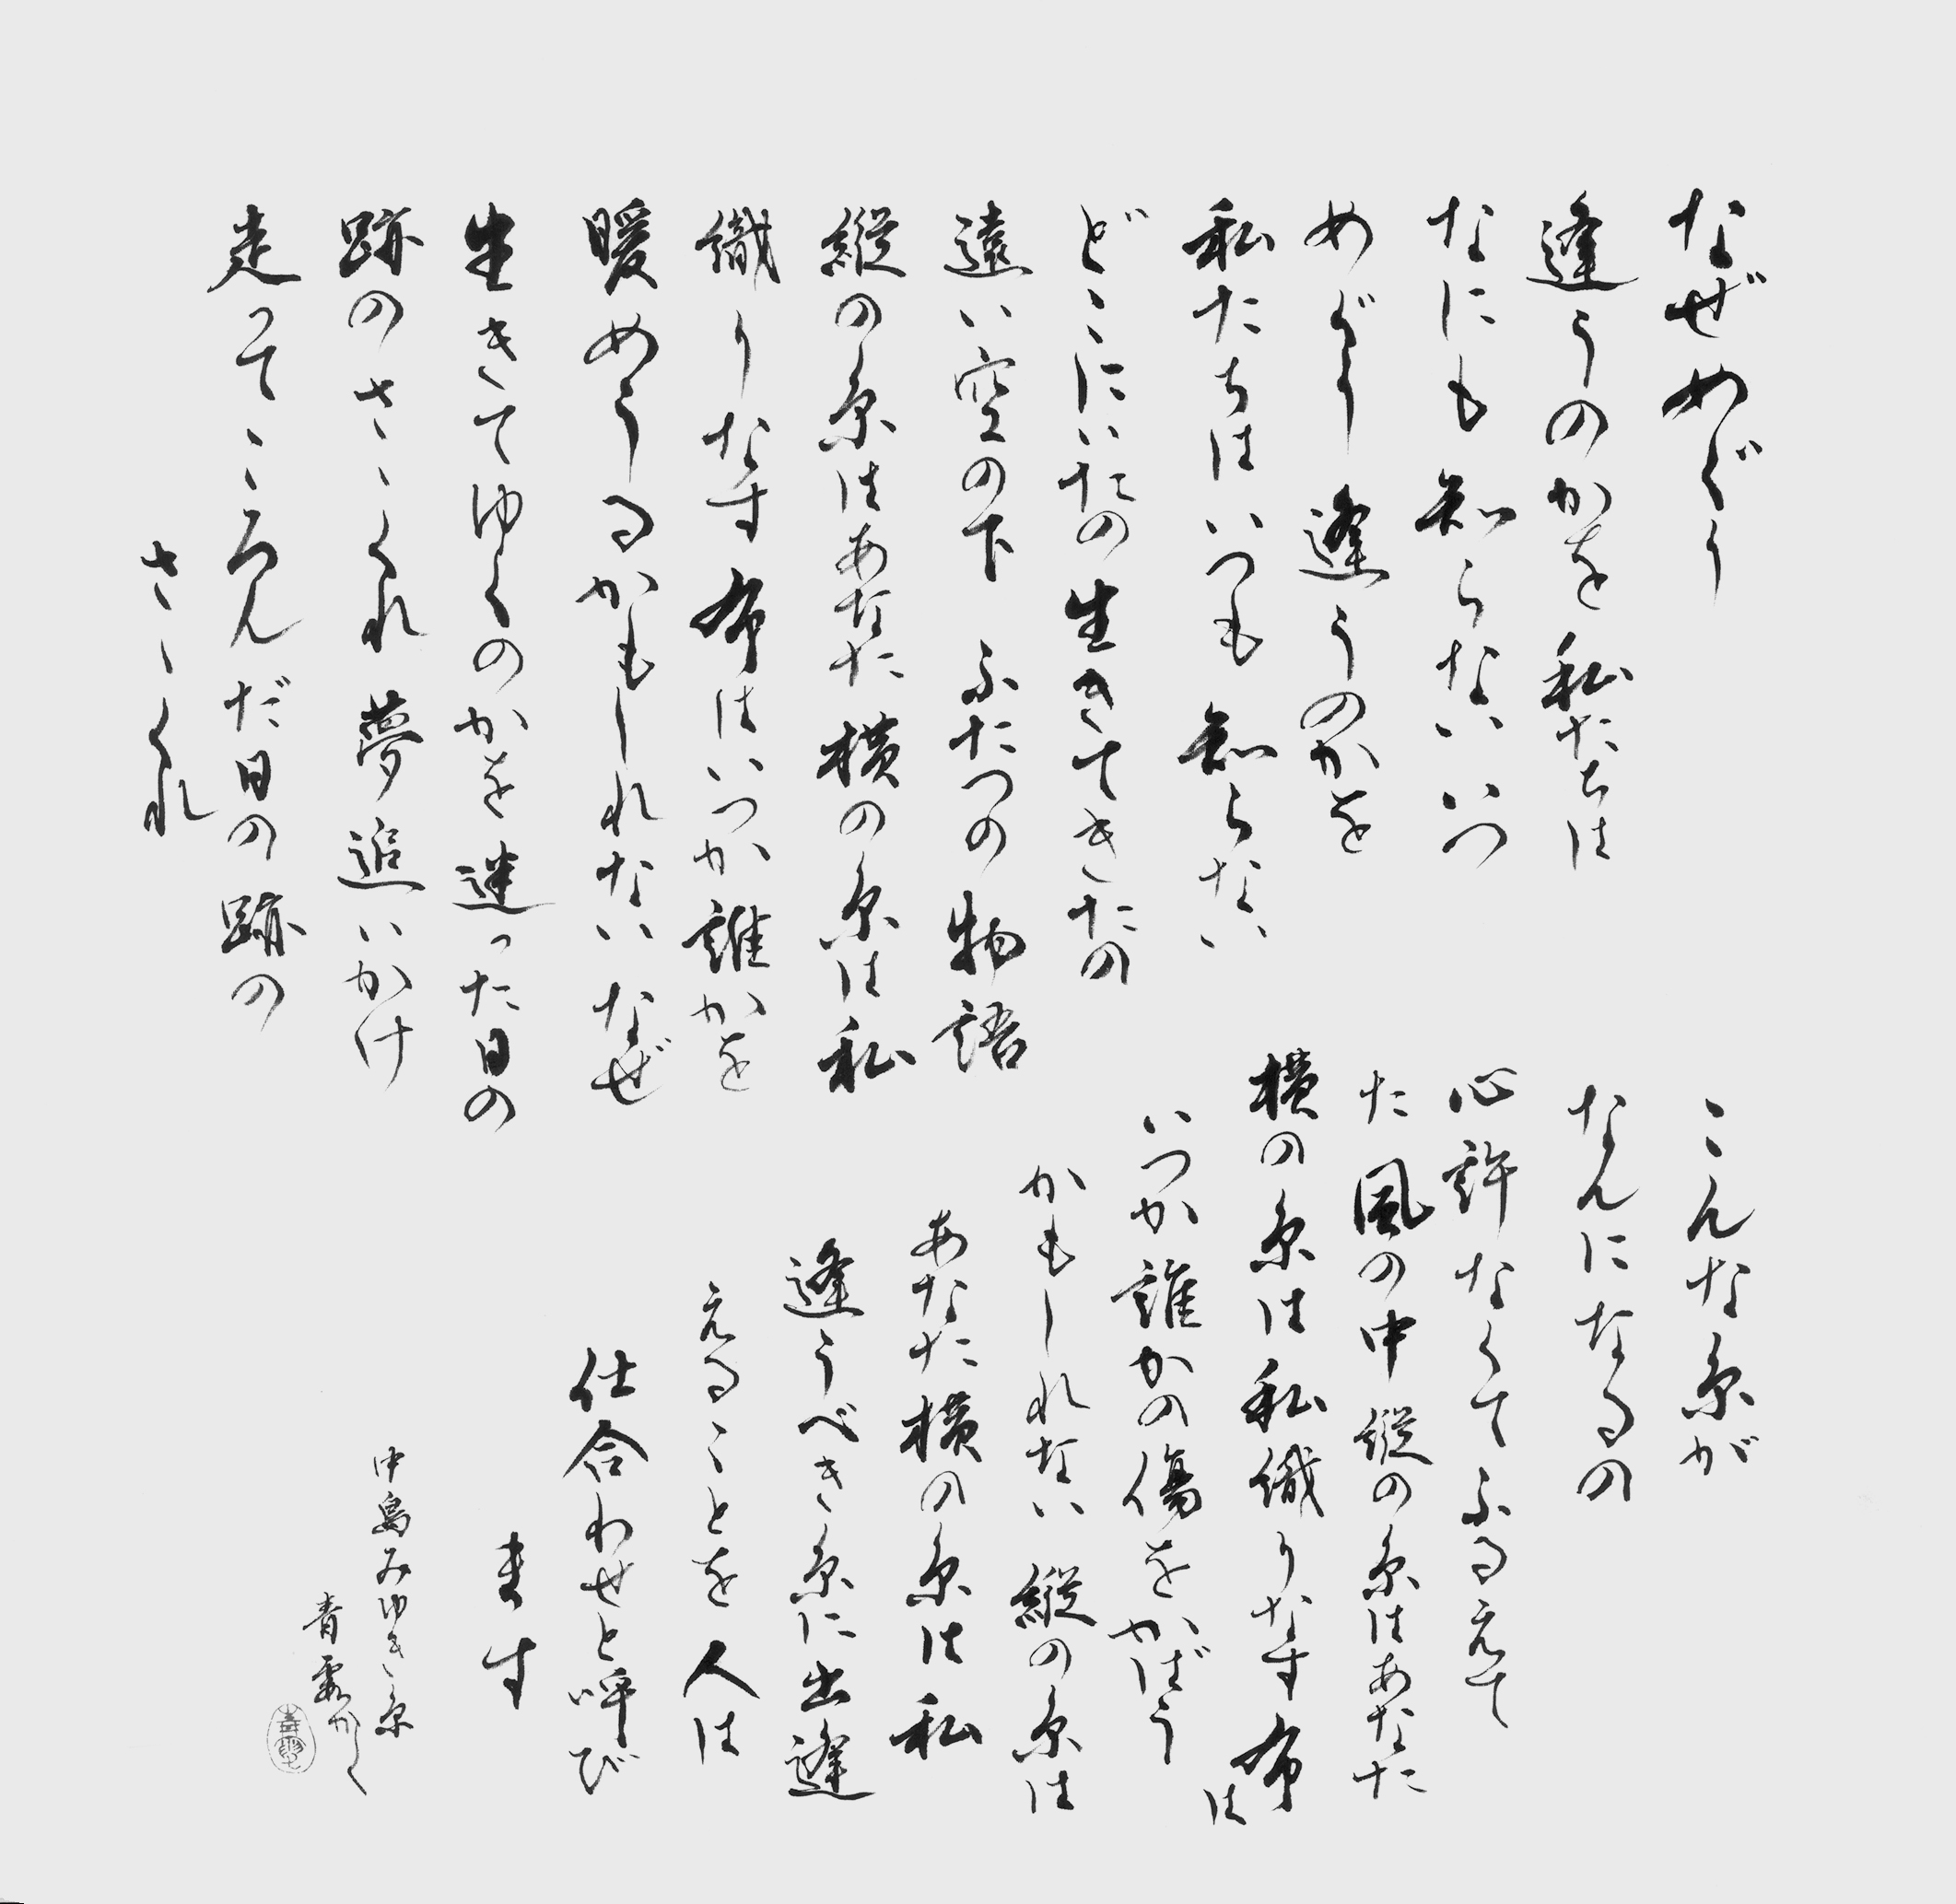 なぜめぐり
逢うのかを私たちは
なにも知らないいつ
めぐり逢うのかを
私たちはいつも知らない
どこにいたの生きてきたの
遠い空の下ふたつの物語
縦の糸はあなた横の糸は私
織りなす布はいつか誰かを
暖めうるかもしれないなぜ
生きてゆくのかを迷った日の
跡のさゝくれ夢追いかけ
走ってころんだ日の跡の
さゝくれ
こんな糸が
なんになるの
心許なくてふるえて
た風の中縦の糸はあなた
横の糸は私織りなす布は
いつか誰かの傷をかばう
かもしれない縦の糸は
あなた横の糸は私
逢うべき糸に出逢
えることを人は
仕合わせと呼び
ます
中島みゆき糸